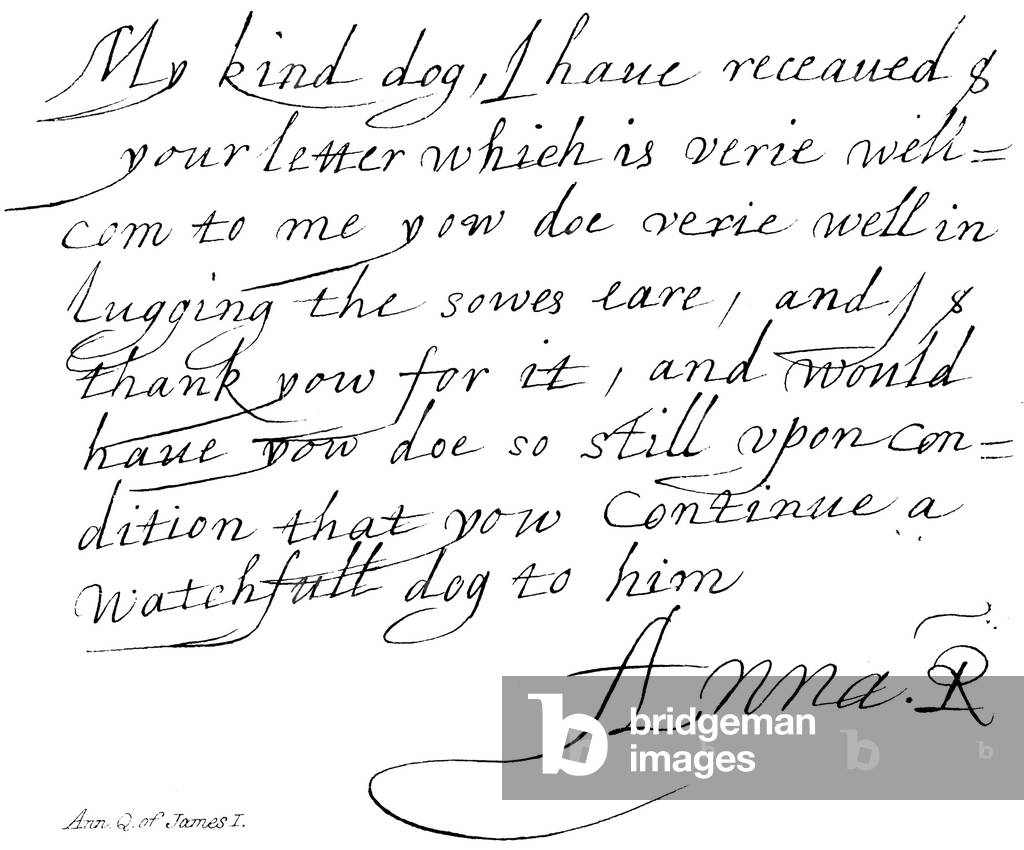 My kind dog, I haue receaued &
your letter which is verie well=
com to me yow doe verie well in
lugging the sowes eare, and I &
thank yow for it, and would
haue yow doe so still vpon con=
dition that yow Continue a
watchfull dog to him
Anna. R
bridgeman
images
Ann Q. of James I.